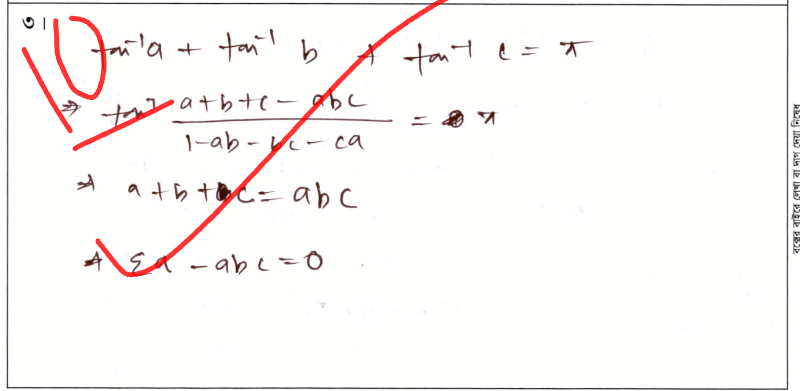 ৩। tan⁻¹a + tan⁻¹ b + tan⁻¹ c = π
10
⇒ tan⁻¹ (a+b+c-abc)/(1-ab-bc-ca) = π
⇒ a+b+c = abc
⇒ Σa - abc = 0
বক্সের বাইরে লেখা বা দাগ দেয়া নিষেধ